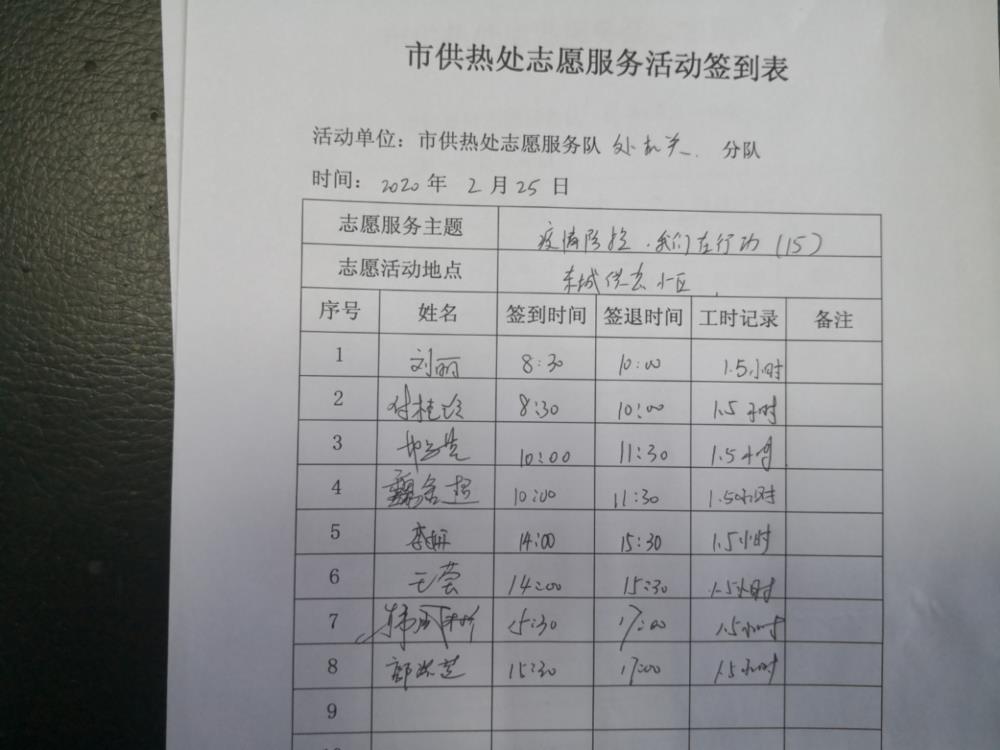 市供热处志愿服务活动签到表
活动单位：市供热处志愿服务队 处机关 分队
时间：2020 年 2 月 25 日
志愿服务主题 疫情防控，我们在行动 (15)
志愿活动地点 东城供热小区
序号 姓名 签到时间 签退时间 工时记录 备注
1 刘丽 8:30 10:00 1.5小时
2 付桂玲 8:30 10:00 1.5小时
3 10:00 11:30 1.5小时
4 10:00 11:30 1.5小时
5 李姗 14:00 15:30 1.5小时
6 王蕓 14:00 15:30 1.5小时
7 15:30 17:00 1.5小时
8 15:30 17:00 1.5小时
9